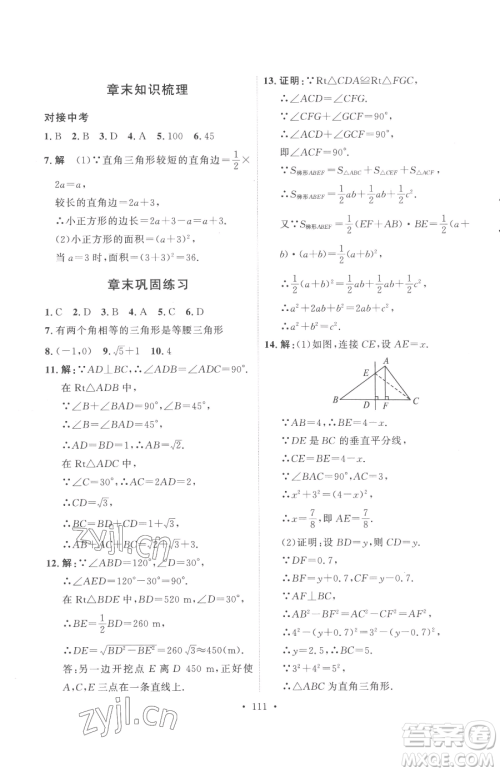 章末知识梳理
对接中考
1. B 2. B 3. D 4. A 5. 100 6. 45
7. 解 (1)∵直角三角形较短的直角边=1/2×
2a=a，
较长的直角边=2a+3，
∴小正方形的边长=2a+3-a=a+3；
(2)小正方形的面积=(a+3)²，
当 a=3 时，面积=(3+3)²=36.
章末巩固练习
1. C 2. D 3. A 4. C 5. D 6. D
7. 有两个角相等的三角形是等腰三角形
8. (-1,0) 9. √5+1 10. 4
11. 解：∵AD⊥BC，∴∠ADB=∠ADC=90°.
在 Rt△ADB 中，
∵∠B+∠BAD=90°，∠B=45°，
∴∠B=∠BAD=45°，
∴AD=BD=1，∴AB=√2.
在 Rt△ADC 中，
∵∠C=30°，∴AC=2AD=2，
∴CD=√3，
∴BC=BD+CD=1+√3，
∴AB+AC+BC=√2+√3+3.
12. 解：∵∠ABD=120°，∠D=30°，
∴∠AED=120°-30°=90°，
在 Rt△BDE 中，BD=520 m，∠D=30°，
∴BE=1/2BD=260 m，
∴DE=√(BD²-BE²)=260√3≈450(m).
答：另一边开挖点 E 离 D 450 m，正好使
A，C，E 三点在一条直线上.
13. 证明：∵Rt△CDA≌Rt△FGC，
∴∠ACD=∠CFG.
∵∠CFG+∠FCG=90°，
∴∠ACD+∠FCG=90°，
即∠ACF=90°.
∵S梯形ABEF=S△ABC+S△CEF+S△ACF，
∴S梯形ABEF=1/2ab+1/2ab+1/2c².
又∵S梯形ABEF=1/2(EF+AB)·BE=1/2(a+
b)·(a+b)=1/2(a+b)²，
∴1/2(a+b)²=1/2ab+1/2ab+1/2c²，
∴a²+b²=c².
14. 解：(1)如图，连接 CE，设 AE=x.
A
E
B D F C
∵AB=4，∴BE=4-x.
∵DE 是 BC 的垂直平分线，
∴CE=BE=4-x.
∵∠BAC=90°，AC=3，
∴x²+3²=(4-x)²，
∴x=7/8，即 AE=7/8.
(2)证明：设 BD=CD=y.
∵DF=0.7，
∴BF=y+0.7，CF=y-0.7.
∵AF⊥BC，
∴∠AFB=∠AFC=90°，
∴4²-(y+0.7)²=3²-(y-0.7)²，
∴4²-3²=(y+0.7)²-(y-0.7)²，
∴y=2.5，∴BC=5.
∵3²+4²=5²，
∴△ABC 为直角三角形.
zyjl.cn
zyjl.cn
· 111 ·
答案圈
MXQE.COM